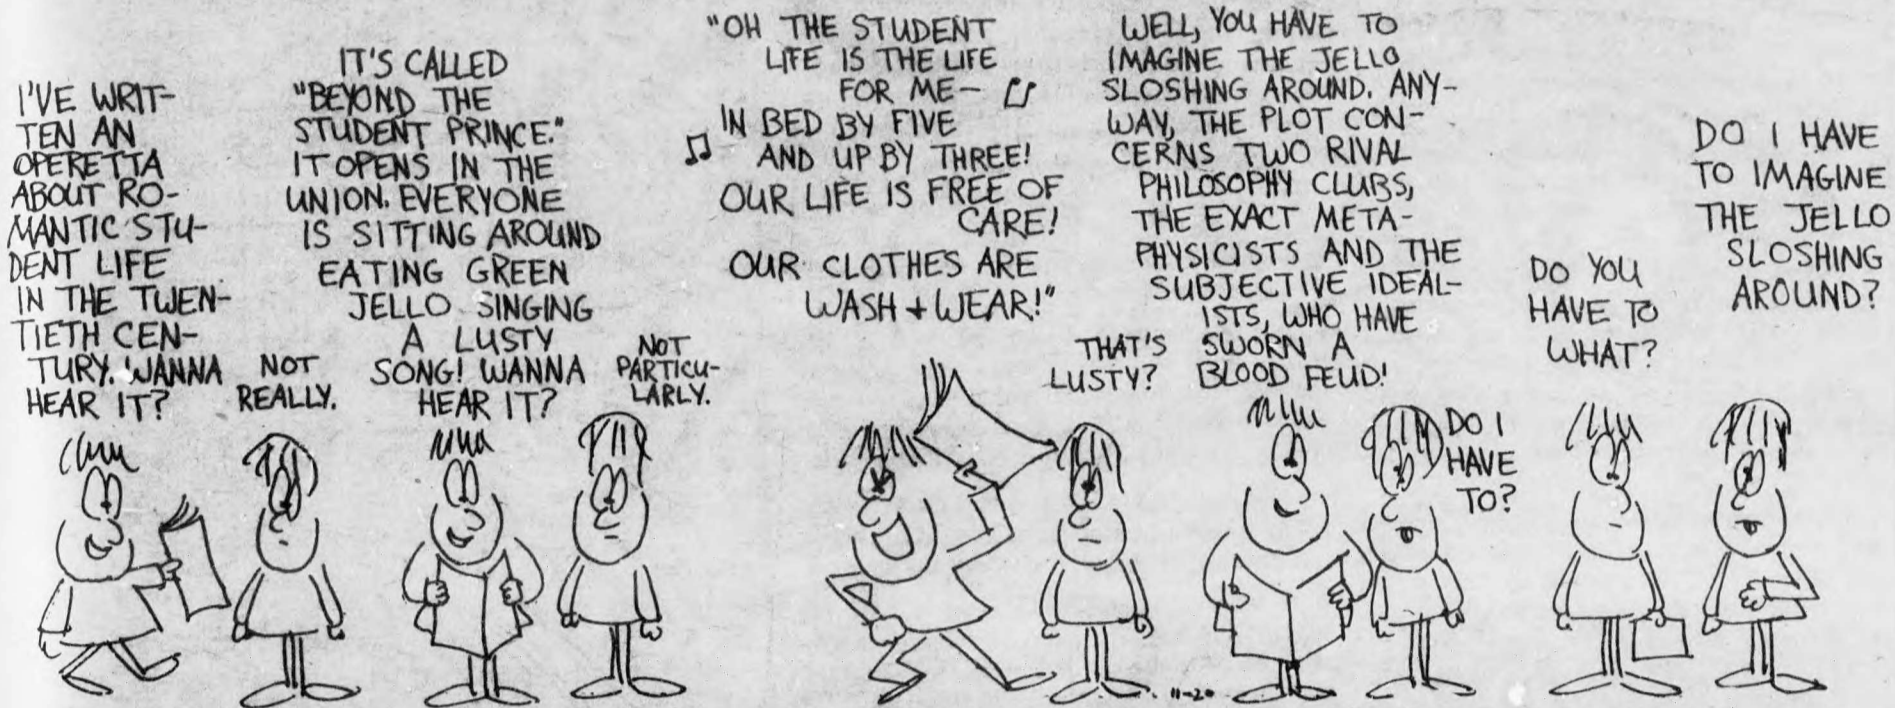 I'VE WRIT-
TEN AN
OPERETTA
ABOUT RO-
MANTIC STU-
DENT LIFE
IN THE TWEN-
TIETH CEN-
TURY. WANNA
HEAR IT?
NOT
REALLY.
IT'S CALLED
"BEYOND THE
STUDENT PRINCE."
IT OPENS IN THE
UNION. EVERYONE
IS SITTING AROUND
EATING GREEN
JELLO SINGING
A LUSTY
SONG! WANNA
HEAR IT?
NOT
PARTICU-
LARLY.
"OH THE STUDENT
LIFE IS THE LIFE
FOR ME—
IN BED BY FIVE
AND UP BY THREE!
OUR LIFE IS FREE OF
CARE!
OUR CLOTHES ARE
WASH + WEAR!"
THAT'S
LUSTY?
WELL, YOU HAVE TO
IMAGINE THE JELLO
SLOSHING AROUND. ANY-
WAY, THE PLOT CON-
CERNS TWO RIVAL
PHILOSOPHY CLUBS,
THE EXACT META-
PHYSICISTS AND THE
SUBJECTIVE IDEAL-
ISTS, WHO HAVE
SWORN A
BLOOD FEUD!
DO I
HAVE
TO?
DO YOU
HAVE TO
WHAT?
DO I HAVE
TO IMAGINE
THE JELLO
SLOSHING
AROUND?
11-20